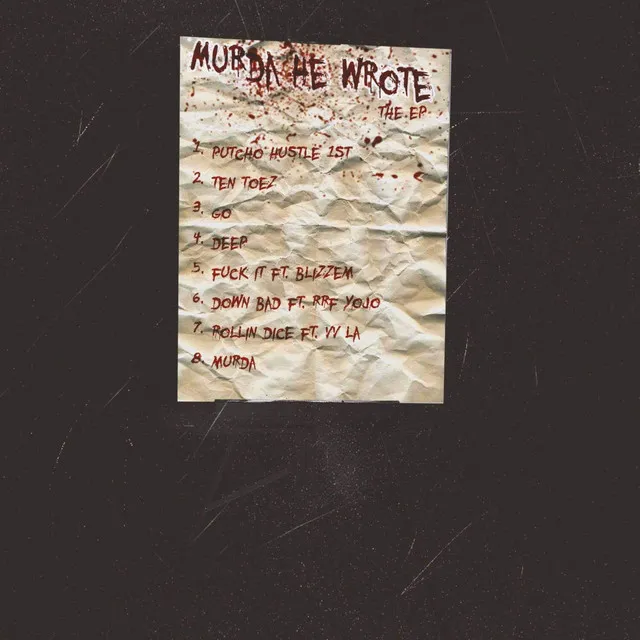 MURDA HE WROTE
THE EP
1. PUTCHO HUSTLE 1ST
2. TEN TOEZ
3. GO
4. DEEP
5. FUCK IT FT. BLIZZEM
6. DOWN BAD FT. RRF YOJO
7. ROLLIN DICE FT. VV LA
8. MURDA